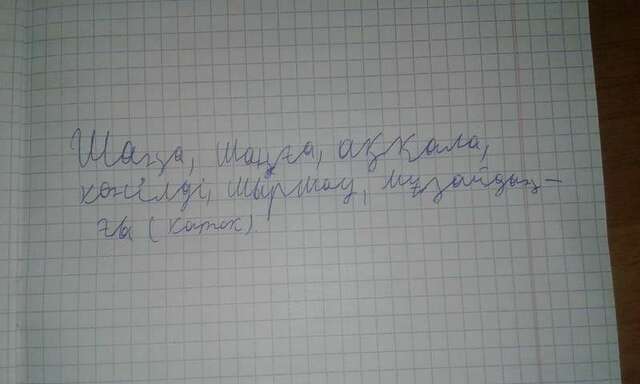 Шана, шаңғы, аққала,
көңілді, шыршау, мұзайдын-
ғы (каток).